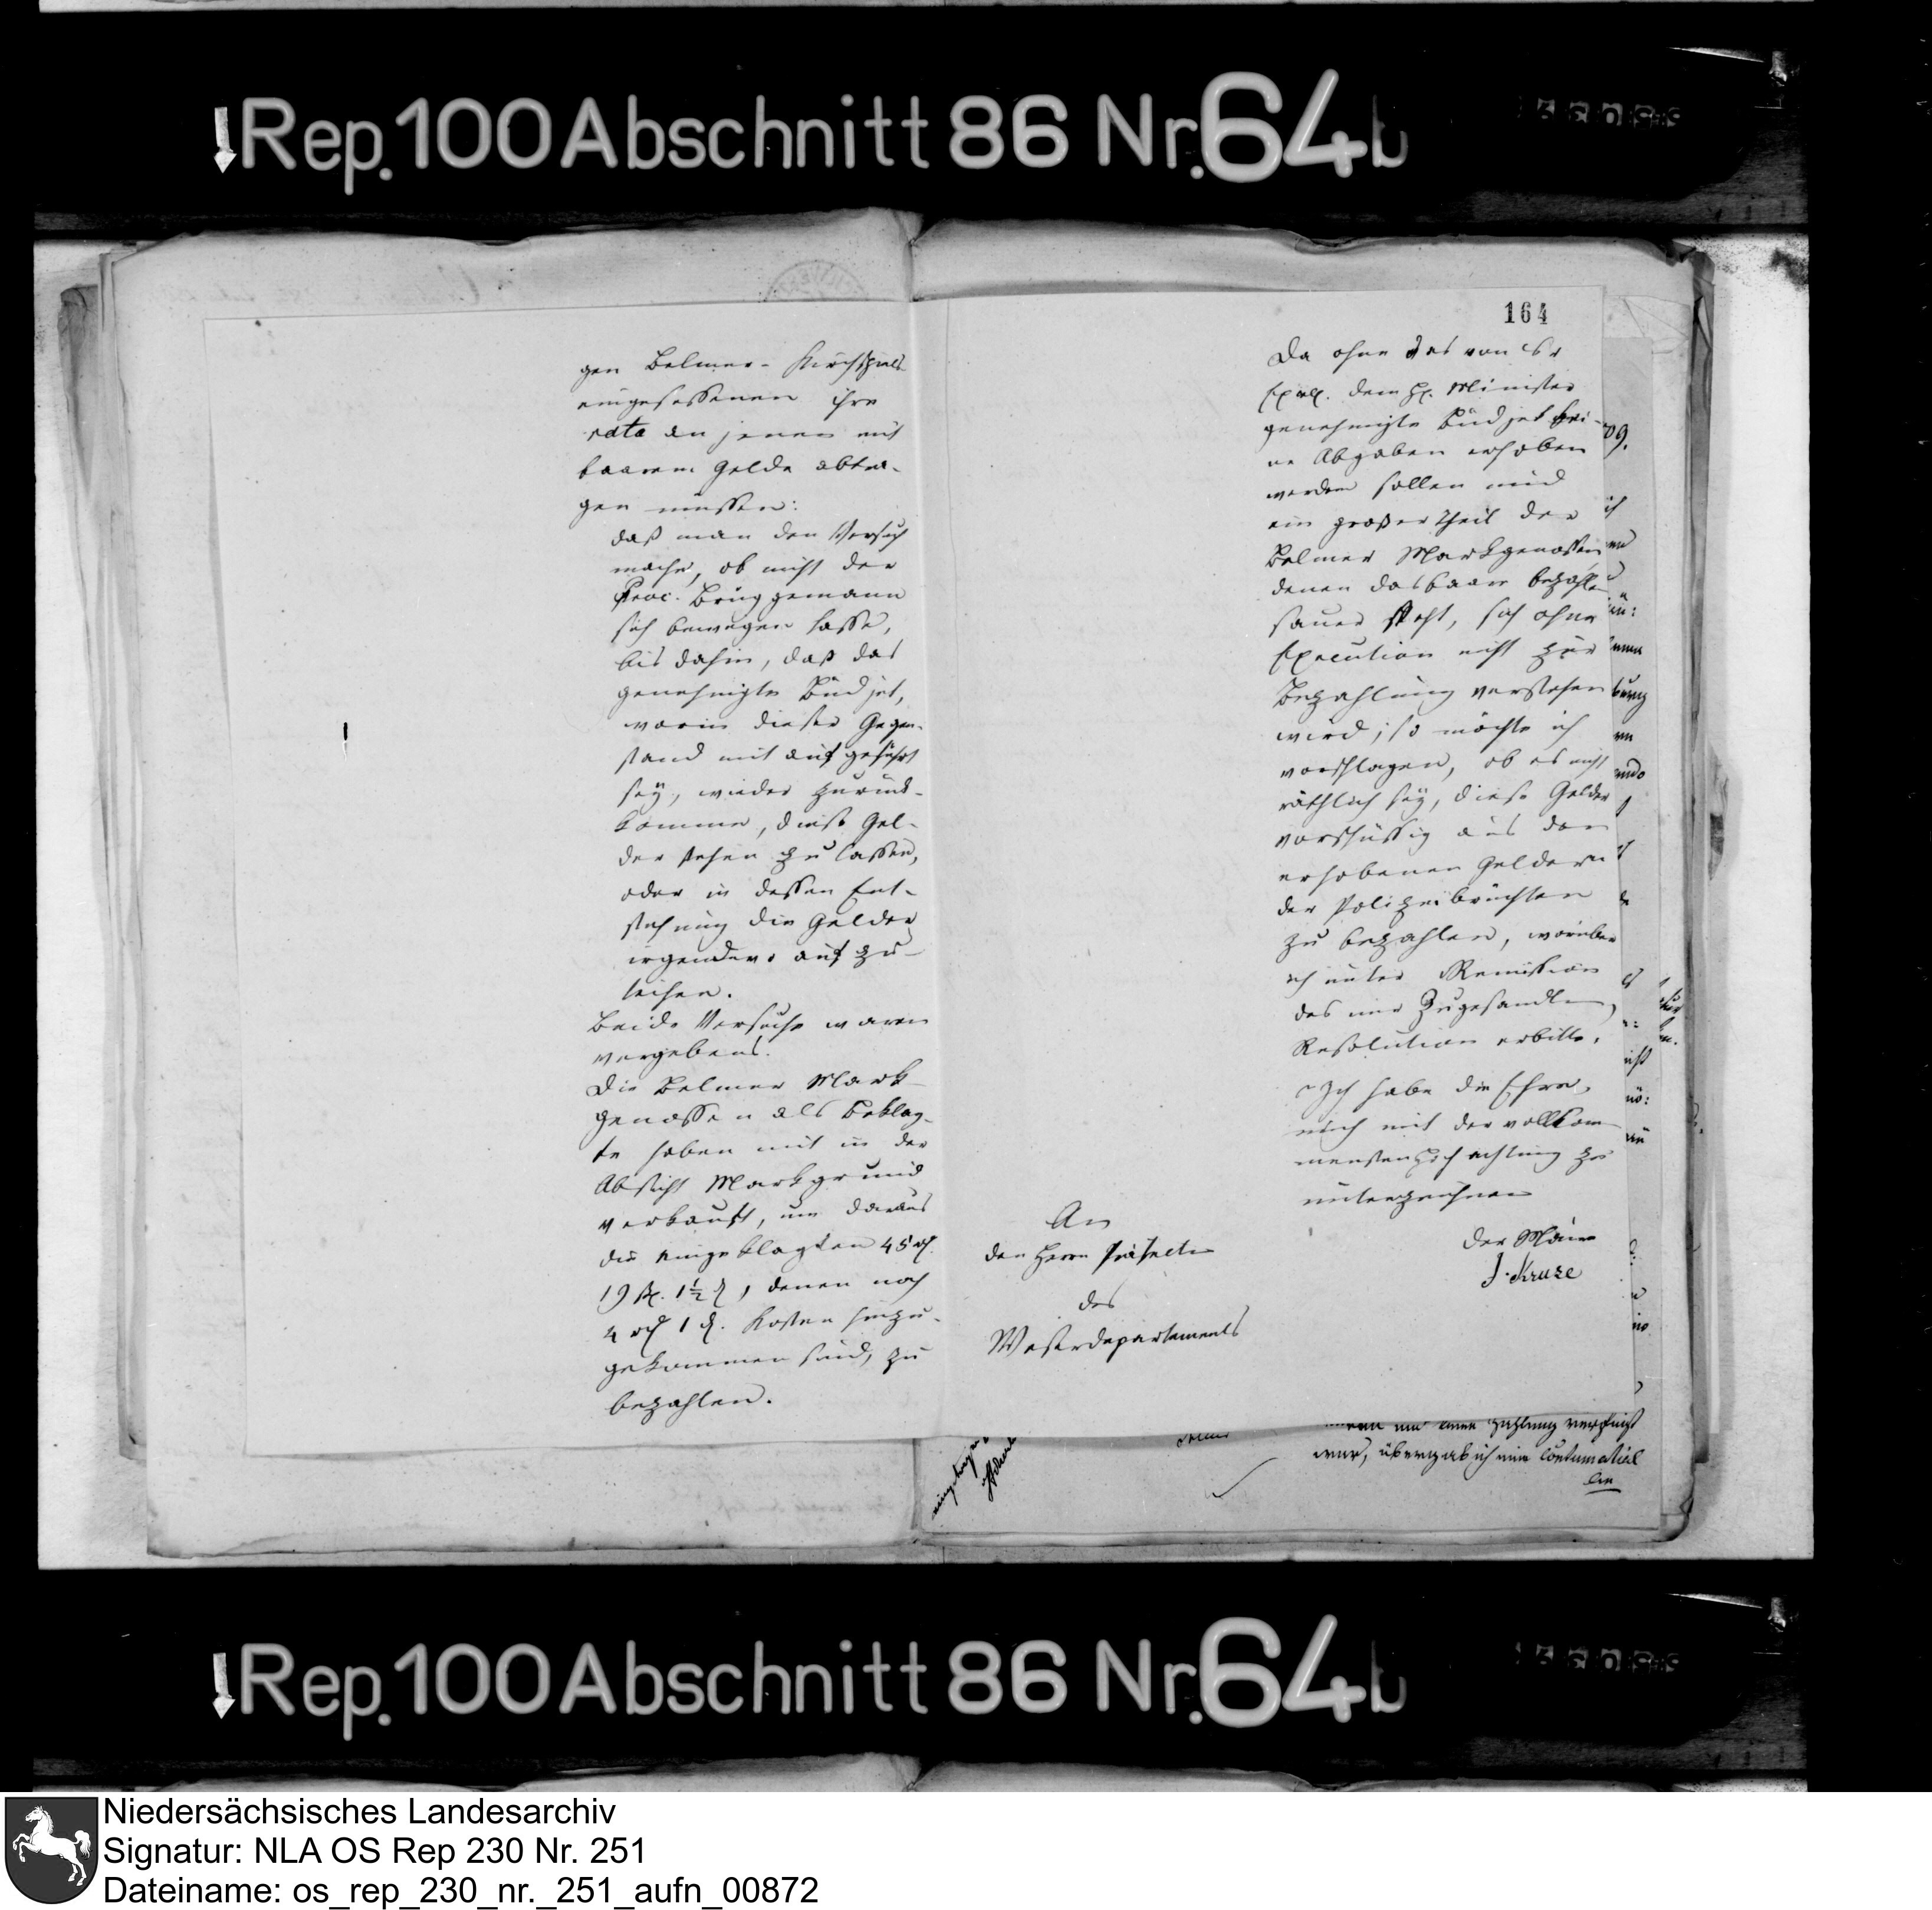 Rep. 100 Abschnitt 86 Nr. 64b
gen Belmer-Kirchspiels
eingesessenen ihre
rata an jenen mit
baarem Gelde abtra-
gen müssen:
daß man den Versuch
mache, ob nicht der
Proc. Brüggemann
sich bewegen lasse,
bis dahin, daß das
genehmigte Büdjet,
worin dieser Gegen-
stand mit aufgeführt
sey, wieder zurück-
komme, diese Gel-
der stehen zu lassen,
oder in dessen Ent-
stehung die Gelder
irgendwo auf zu
leihen.
Beide Versuche waren
vergebens.
Die Belmer Mark-
genossen als Beklag-
te haben mit in der
Absicht Markgrund
verkauft, um daraus
die eingeklagten 45
19 1½, denen noch
4 1 Kosten hinzu-
gekommen sind, zu
bezahlen.
164
Da ohne das von Sr
Excell. dem H. Minister
genehmigte Büdjet kei-
ne Abgaben erhoben
werden sollen und
ein großer Theil der
Belmer Markgenossen
denen das baare bezahlen
sauer steht, sich ohne
Execution nicht zur
Bezahlung verstehen
wird; so möchte ich
vorschlagen, ob es nicht
räthlich sey, diese Gelder
vorschüssig aus den
erhobenen Geldern
der Polizeibrüchten
zu bezahlen, worüber
ich unter Remission
des mir Zugesandten,
Resolution erbitte.
Ich habe die Ehre,
mich mit der vollkom-
mensten Hochachtung zu
unterzeichnen
Der Maire
J. Kruse
An
den Herrn Präfecten
des
Weserdepartements
einer Zahlung
war, übergab ich eine
Rep. 100 Abschnitt 86 Nr. 64b
Niedersächsisches Landesarchiv
Signatur: NLA OS Rep 230 Nr. 251
Dateiname: os_rep_230_nr._251_aufn_00872